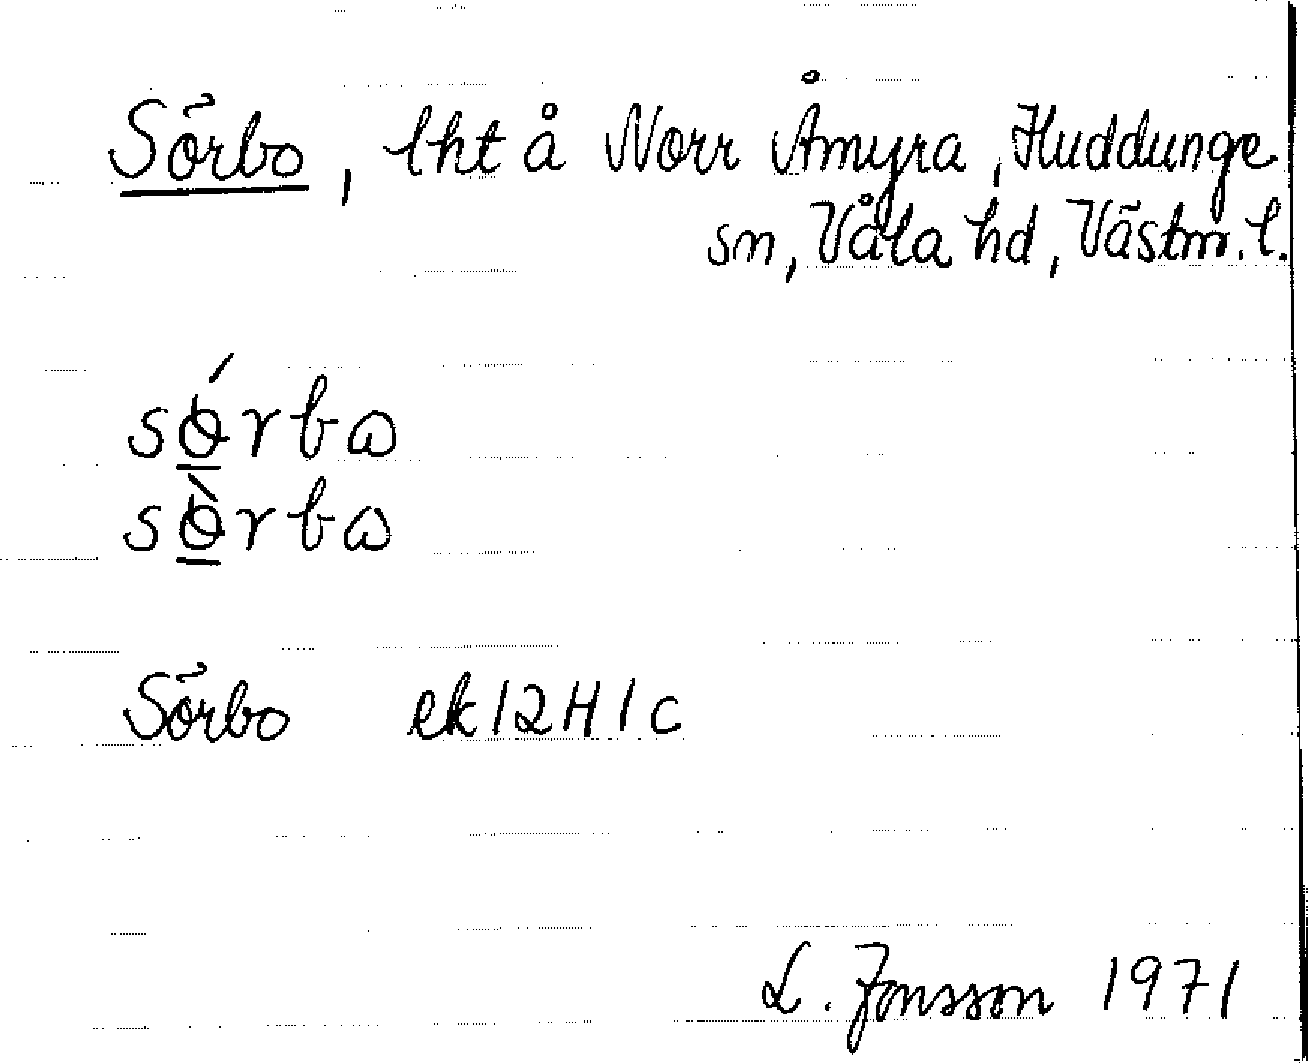 Sörbo, lht å Norr Åmyra, Huddunge
sn, Våla hd, Västm. l.
sǿrba
sø̀rba
Sörbo ek 12H1c
L. Jonsson 1971